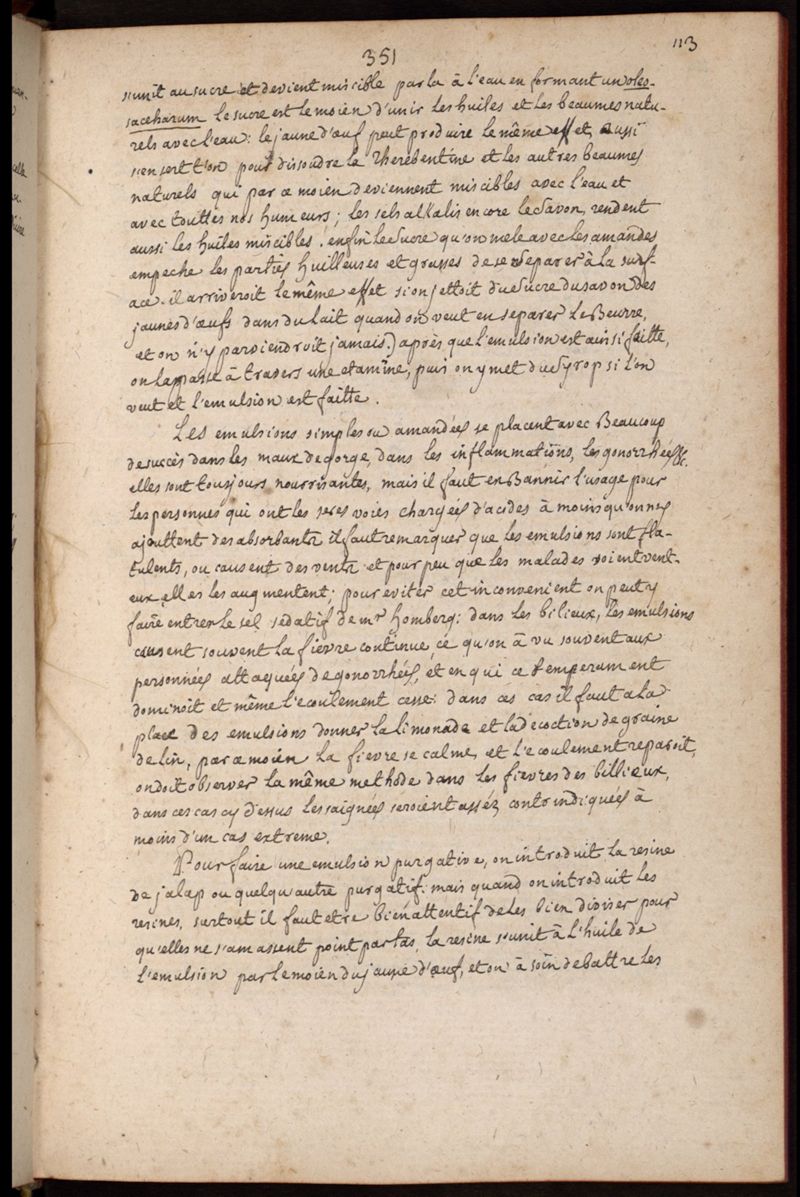 351
113
s'unit au sucre et devient miscible par la à l'eau en formant un oleo-
saccharum le sucre est le moien d'unir les huiles et les beaumes natu-
rels avec l'eau: le jaune d'œuf peut produire le même effet, aussi
s'en sert t'on pour dissoudre la Therebentine et les autres beaumes
naturels qui par ce moien deviennent miscibles avec l'eau et
avec touttes nos humeurs; les sels alkalis encore le savon, rendent
aussi les huiles miscibles. enfin le sucre qu'on mele avec les amandes
empeche les parties huilleuses et grasses de se separer à la surf-
ace. il arriveroit le même effet si on jettoit du sucre du savon des
jaunes d'œufs dans du lait quand on veut en separer le Beurre,
et on n'y parviendroit jamais.) après que l'emulsion est ainsi faitte,
on la passe à travers une etamine, puis on y met du syrop si l'on
veut et l'emulsion est faitte.
Les emulsions simples ou amandées se placent avec Beaucoup
de succès dans les maux de gorge, dans les inflammations, les gonorrhées &c.
elles sont tousjours nourrisantes, mais il faut en Bannir l'usage pour
les personnes qui ont les 1eres voies chargées d'acides à moins qu'on n'y
ajouttent des absorbants il faut remarquer que les emulsions sont fla-
tulents, ou causent des vents et pour peu que les malades soient vent-
eux, elles les augmentent; pour eviter cet inconvenient on peut y
faire entrer le sel sédatif de mr homberg: dans les bilieux, les emulsions
causent souvent la fievre continue, ce qu'on à vu souvent aux
personnées attaquées de gonorrhées, et en qui ce temperament
dominoit et même l'ecoulement cesse: dans ces cas il faut a la
place des emulsions donner la limonade et la decoction de graine
de lin, par ce moien la fievre se calme, et l'ecoulement reparoit,
on doit observer la même methode dans les fievres des billieux,
dans ces cas cy dessus les saignées seroient assez contrindiquées à
moins d'un cas extreme.
Pour faire une emulsion purgative, on introduit la resine
de jalap ou quelqu'autre purgatif. mais quand on introduit les
resines, surtout il faut etre bien attentif de les bien diviser pour
qu'elles ne s'amassent point par tas, la resine s'unit à l'huile de
l'emulsion par le moien du jaune d'œuf, et on à soin de battre les